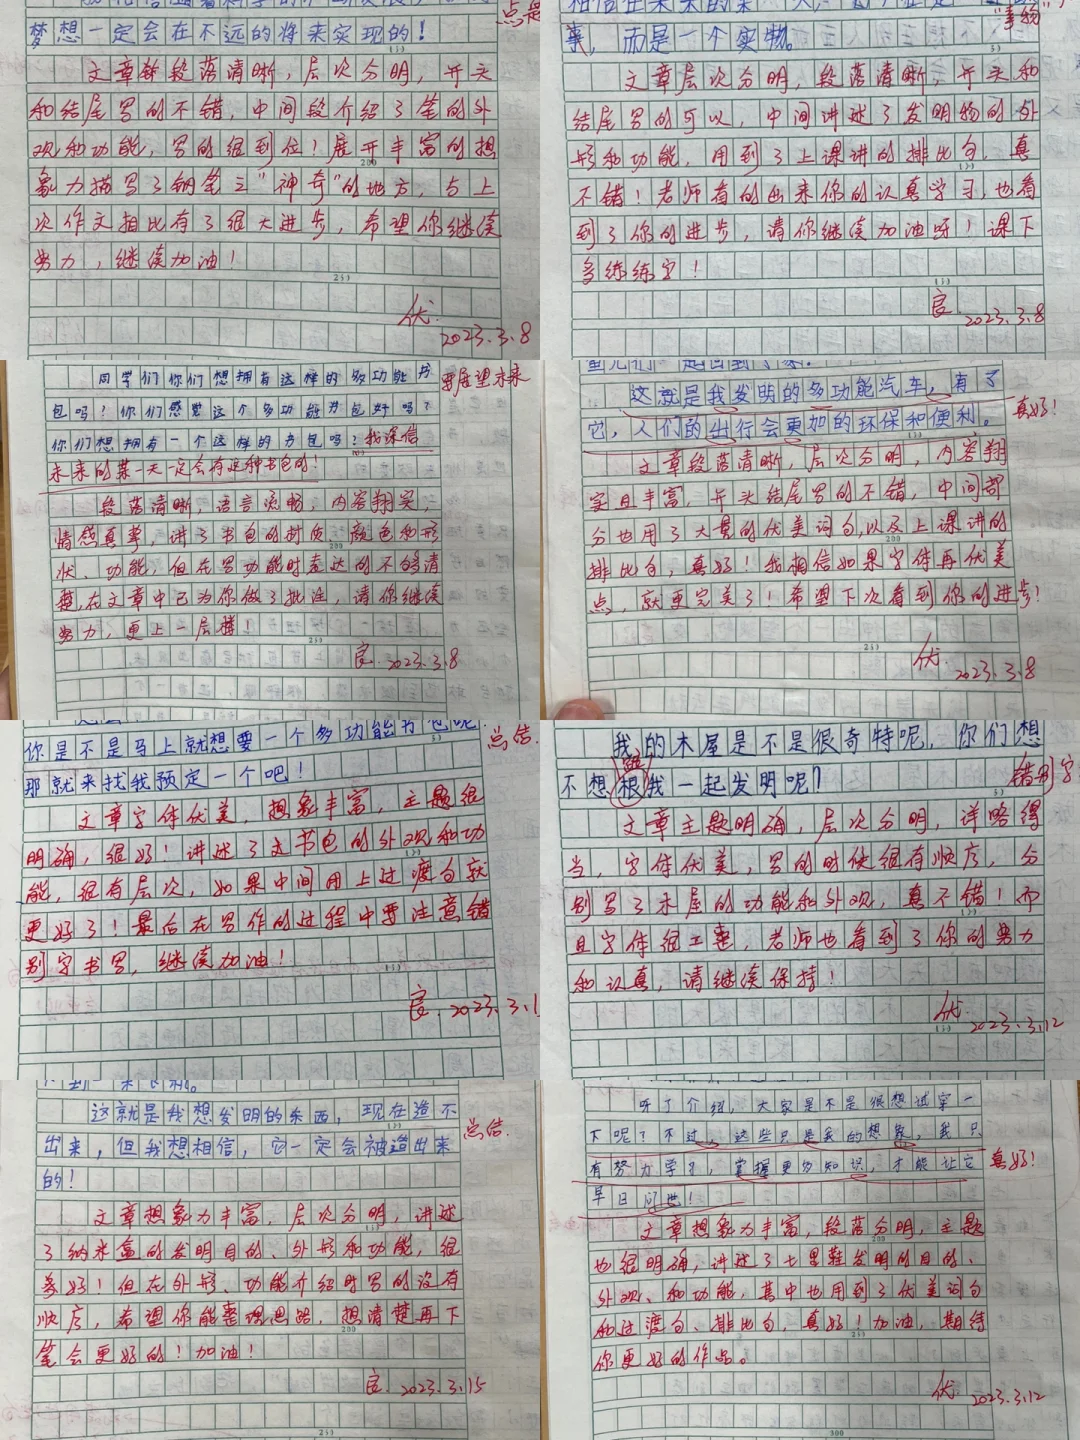 梦想一定会在不远的将来实现的！
点题
文章段落清晰，层次分明，开头
和结尾写的不错，中间段介绍了笔的外
观和功能，写的很到位！展开丰富的想
象力描写了钢笔之"神奇"的地方，与上
次作文相比有了很大进步，希望你继续
努力，继续加油！
优.
2023.3.8
事，而是一个实物。
"事物"
文章层次分明，段落清晰，开头和
结尾写的可以，中间讲述了发明物的外
形和功能，用到了上课讲的排比句，真
不错！老师有的出来你的认真学习，也看
到了你的进步，请你继续加油呀！课下
多练练字！
良.
2023.3.8
同学们你们想拥有这样的多功能书
要展望未来
包吗！你们感觉这个多功能书包好吗？
你们想拥有一个这样的书包吗？我深信
未来的某一天一定会有这种书包的！
段落清晰，语言流畅，内容翔实，
情感真挚，讲了书包的材质、颜色和形
状、功能，但在写功能时表达的不够清
楚，在文章中已为你做了批注，请你继续
努力，更上一层楼！
良. 2023.3.8
这就是我发明的多功能汽车，有了
它，人们的出行会更加的环保和便利。
真好！
文章段落清晰，层次分明，内容翔
实且丰富，开头结尾写的不错，中间部
分也用了大量的优美词句，以及上课讲的
排比句，真好！我相信如果字体再优美
点，就更完美了！希望下次看到你的进步！
优.
2023.3.8
你是不是马上就想要一个多功能书包呢？
总结.
那就来找我预定一个吧！
文章字体优美，想象丰富，主题很
明确，很好！讲述了文书包的外观和功
能，很有层次，如果中间用上过渡句就
更好了！最后在写作的过程中要注意错
别字书写，继续加油！
良. 2023.3.1
我的木屋是不是很奇特呢，你们想
不想根我一起发明呢？
跟
错别字
文章主题明确，层次分明，详略得
当，字体优美，写的时候很有顺序，分
别写了木屋的功能和外观，真不错！而
且字体很工整，老师也看到了你的努力
和认真，请继续保持！
优.
2023.3.12
这就是我想发明的东西，现在造不
出来，但我想相信，它一定会被造出来
的！
总结.
文章想象力丰富，层次分明，讲述
了纳米盒的发明目的、外形和功能，很
美好！但在外形、功能介绍时写的没有
顺序，希望你能整理思路，想清楚再下
笔会更好的！加油！
良. 2023.3.15
听了介绍，大家是不是很想试穿一
下呢？不过，这些只是我的想象，我只
有努力学习，掌握更多知识，才能让它
早日问世！
真好！
文章想象力丰富，段落分明，主题
也很明确，讲述了七里鞋发明的目的、
外观、和功能，其中也用到了优美词句
和过渡句、排比句，真好！加油，期待
你更好的作品。
优.
2023.3.12